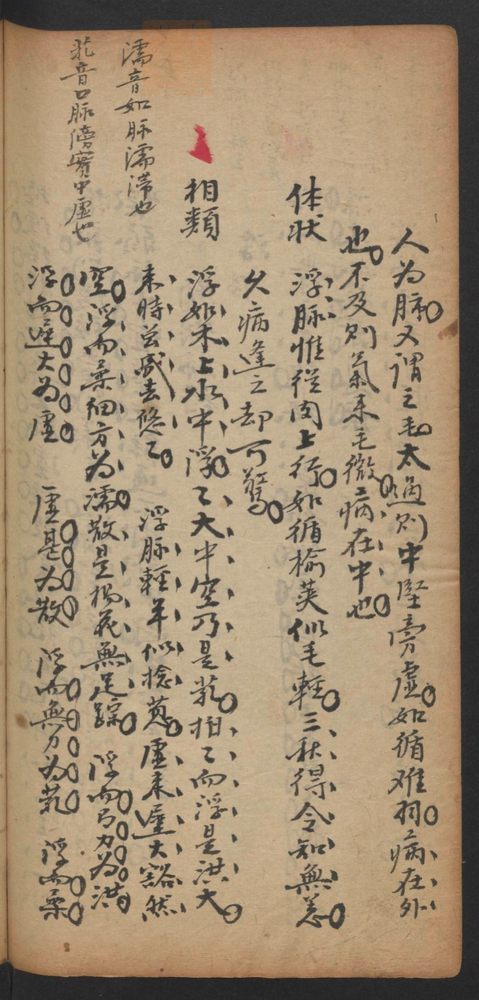 人為脉又謂之毛太過則中堅旁虛如循雞羽病在外
也不及則氣來毛微病在中也
体狀 浮脉惟從肉上行如循榆莢似毛輕三秋得令知無恙
久病逢之却可驚
相類 浮如木上水中浮乙大中空乃是芤相乙而浮是洪
來時虽盛去悠乙 浮脉輕平似捻葱虛來遲大豁然
空浮而柔細方為濡散是楊花無定踪 浮而有力為洪
浮而遲大為虛 虛甚為散 浮而無力為芤 浮而柔
濡音如脉濡滯也
芤音口脉傍實中虛也